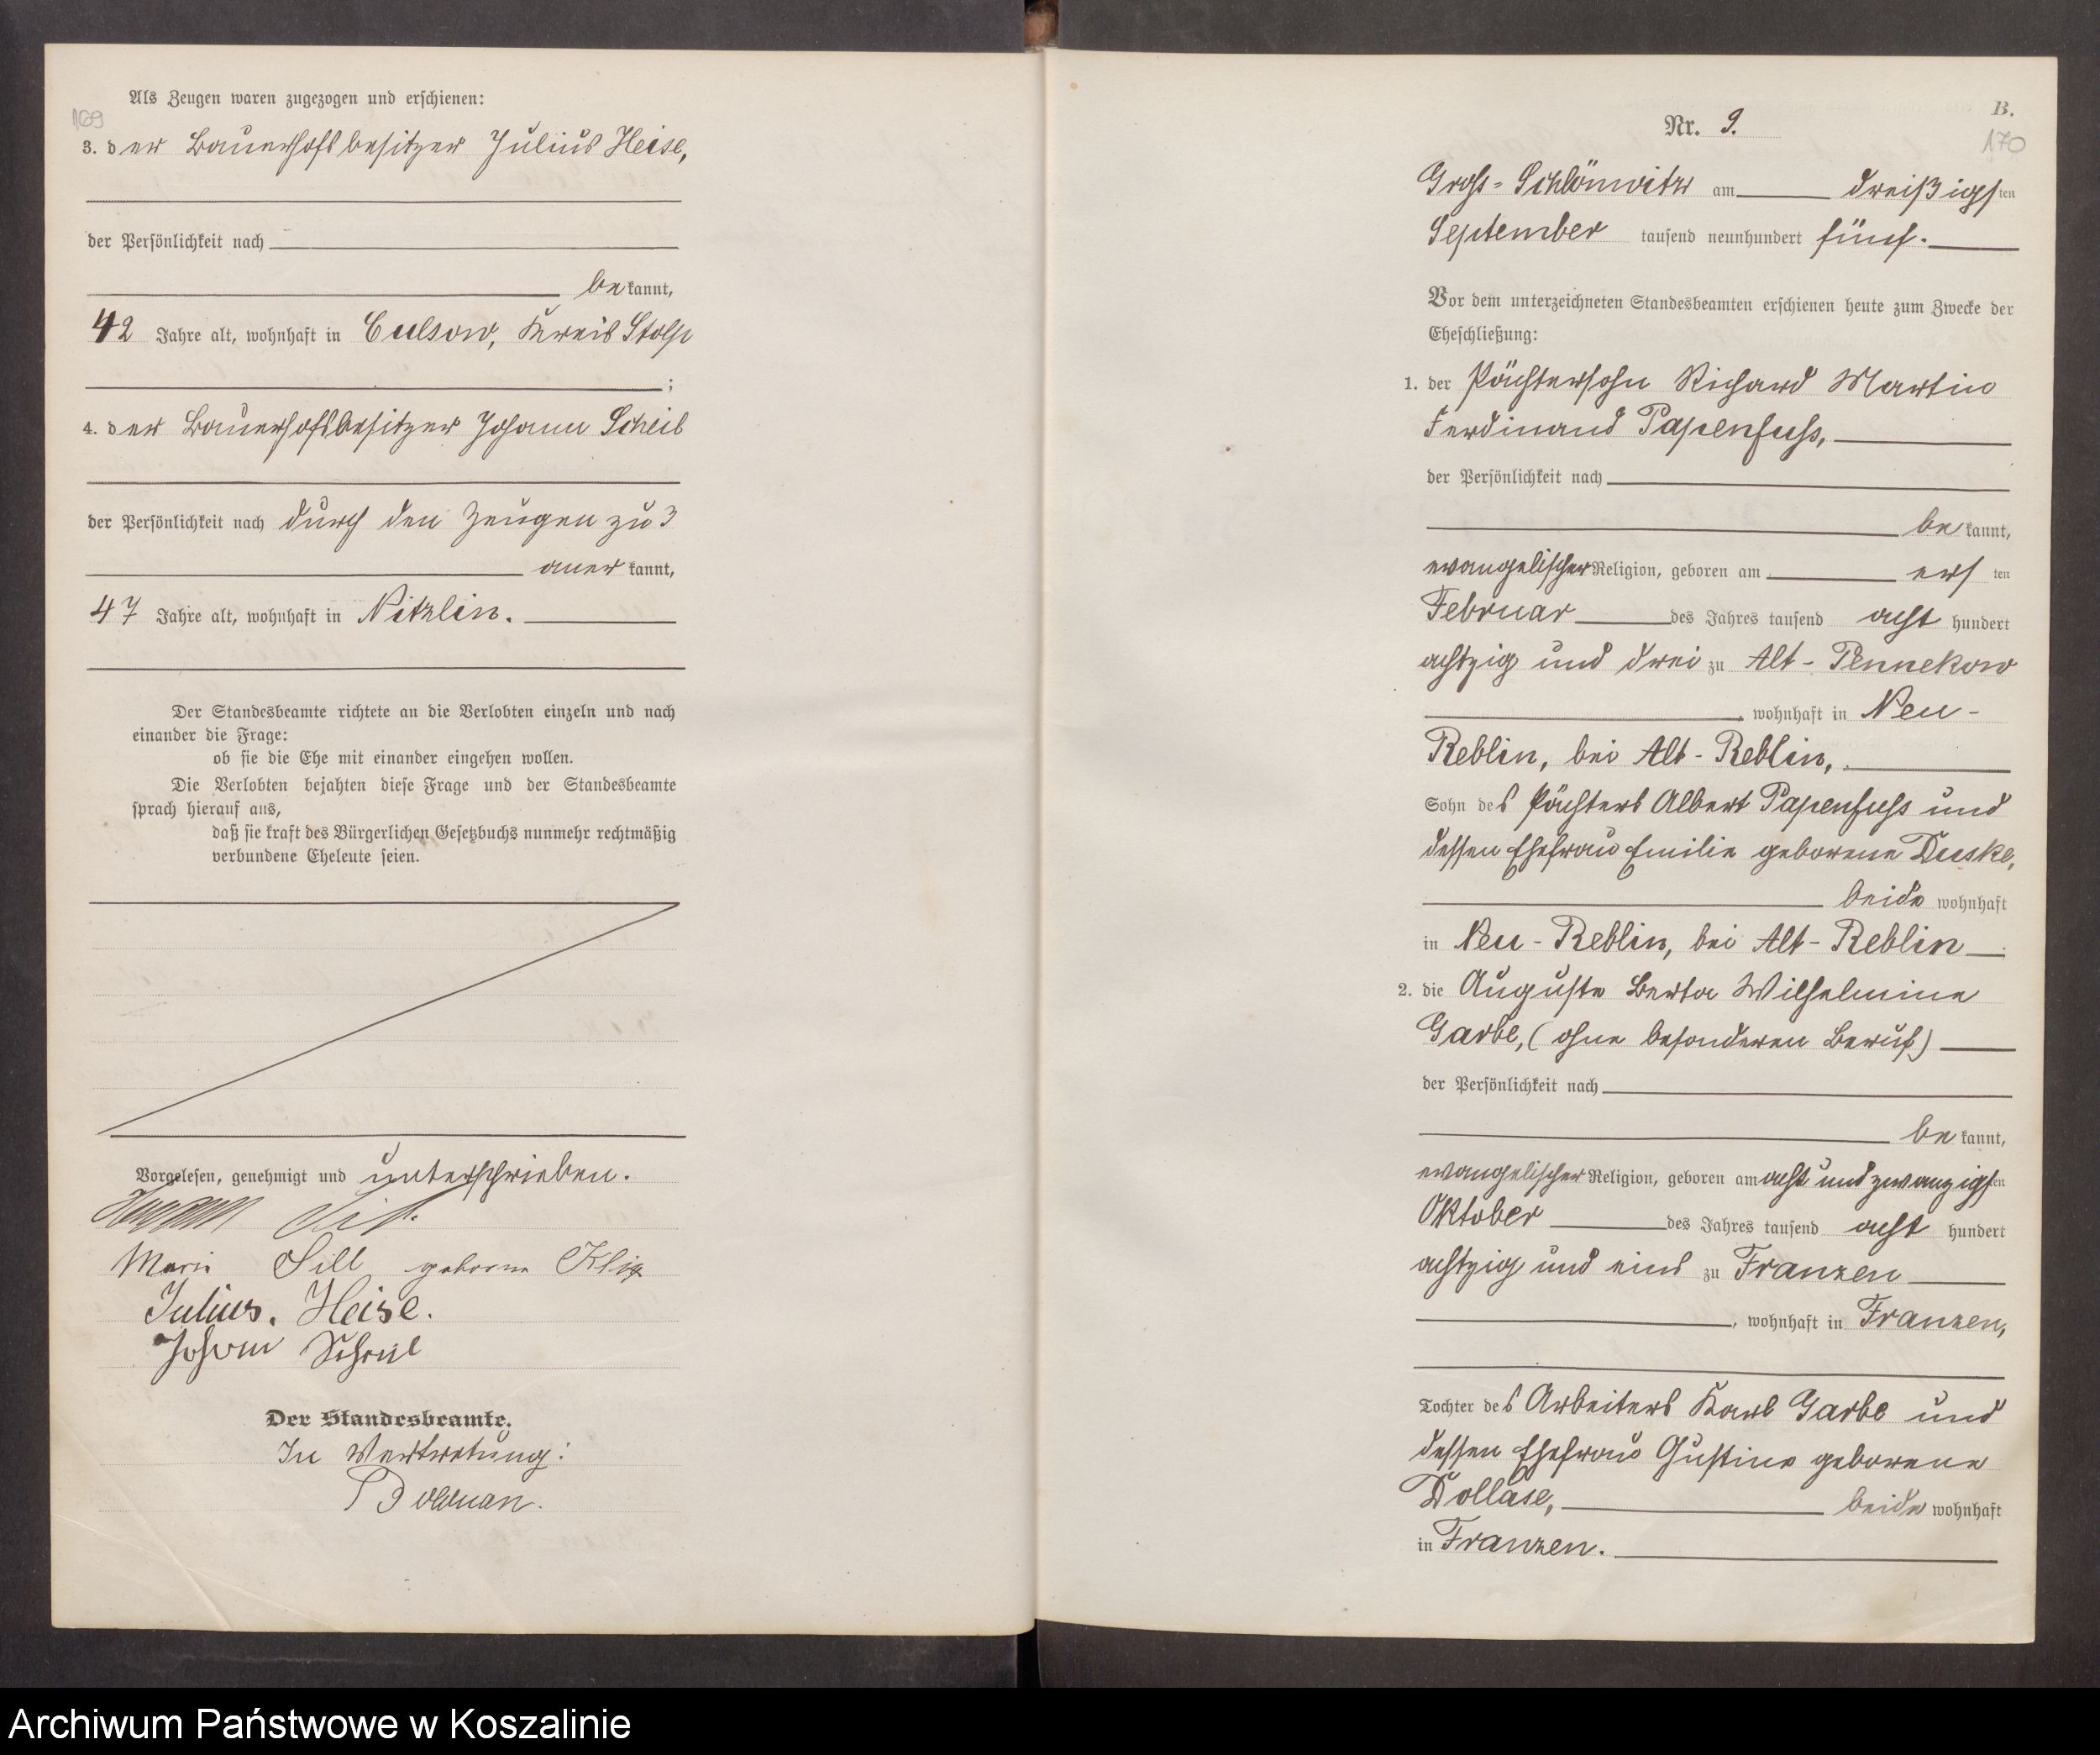 169
Als Zeugen waren zugezogen und erschienen:
3. der Bauerhofsbesitzer Julius Heise,
der Persönlichkeit nach
bekannt,
42 Jahre alt, wohnhaft in Culsow, Kreis Stolp
;
4. der Bauerhofsbesitzer Johann Scheil
der Persönlichkeit nach durch den Zeugen zu 3
anerkannt,
47 Jahre alt, wohnhaft in Nitzlin.
Der Standesbeamte richtete an die Verlobten einzeln und nach
einander die Frage:
ob sie die Ehe mit einander eingehen wollen.
Die Verlobten bejahten diese Frage und der Standesbeamte
sprach hierauf aus,
daß sie kraft des Bürgerlichen Gesetzbuchs nunmehr rechtmäßig
verbundene Eheleute seien.
Vorgelesen, genehmigt und unterschrieben.
Marie Sill geborne
Julius. Heise.
Johann
Der Standesbeamte.
In Vertretung:
Bolduan.
B.
170
Nr. 9.
Gross-Schlönwitz am dreißigsten
September tausend neunhundert fünf.
Vor dem unterzeichneten Standesbeamten erschienen heute zum Zwecke der
Eheschließung:
1. der Pächtersohn Richard Martin
Ferdinand Papenfuss,
der Persönlichkeit nach
bekannt,
evangelischer Religion, geboren am ersten
Februar des Jahres tausend acht hundert
achtzig und drei zu Alt-Pennekow
, wohnhaft in Neu-
Reblin, bei Alt-Reblin,
Sohn des Pächters Albert Papenfuss und
dessen Ehefrau Emilie geborene Duske,
beide wohnhaft
in Neu-Reblin, bei Alt-Reblin.
2. die Auguste Berta Wilhelmine
Garbe, (ohne besonderen Beruf)
der Persönlichkeit nach
bekannt,
evangelischer Religion, geboren am acht und zwanzigsten
Oktober des Jahres tausend acht hundert
achtzig und eins zu Franzen
, wohnhaft in Franzen,
Tochter des Arbeiters Karl Garbe und
dessen Ehefrau Justine geborene
Dollase, beide wohnhaft
in Franzen.
Archiwum Państwowe w Koszalinie